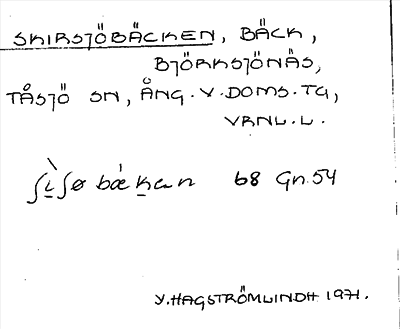 SKIRSJÖBÄCKEN, BÄCK,
BJÖRKSJÖNÄS,
TÅSJÖ SN, ÅNG. V. DOMS. TG,
VRNL. L.
ʃi̖ʃø bækan 68 Gn. 54
V. HAGSTRÖMLINDH 1971.